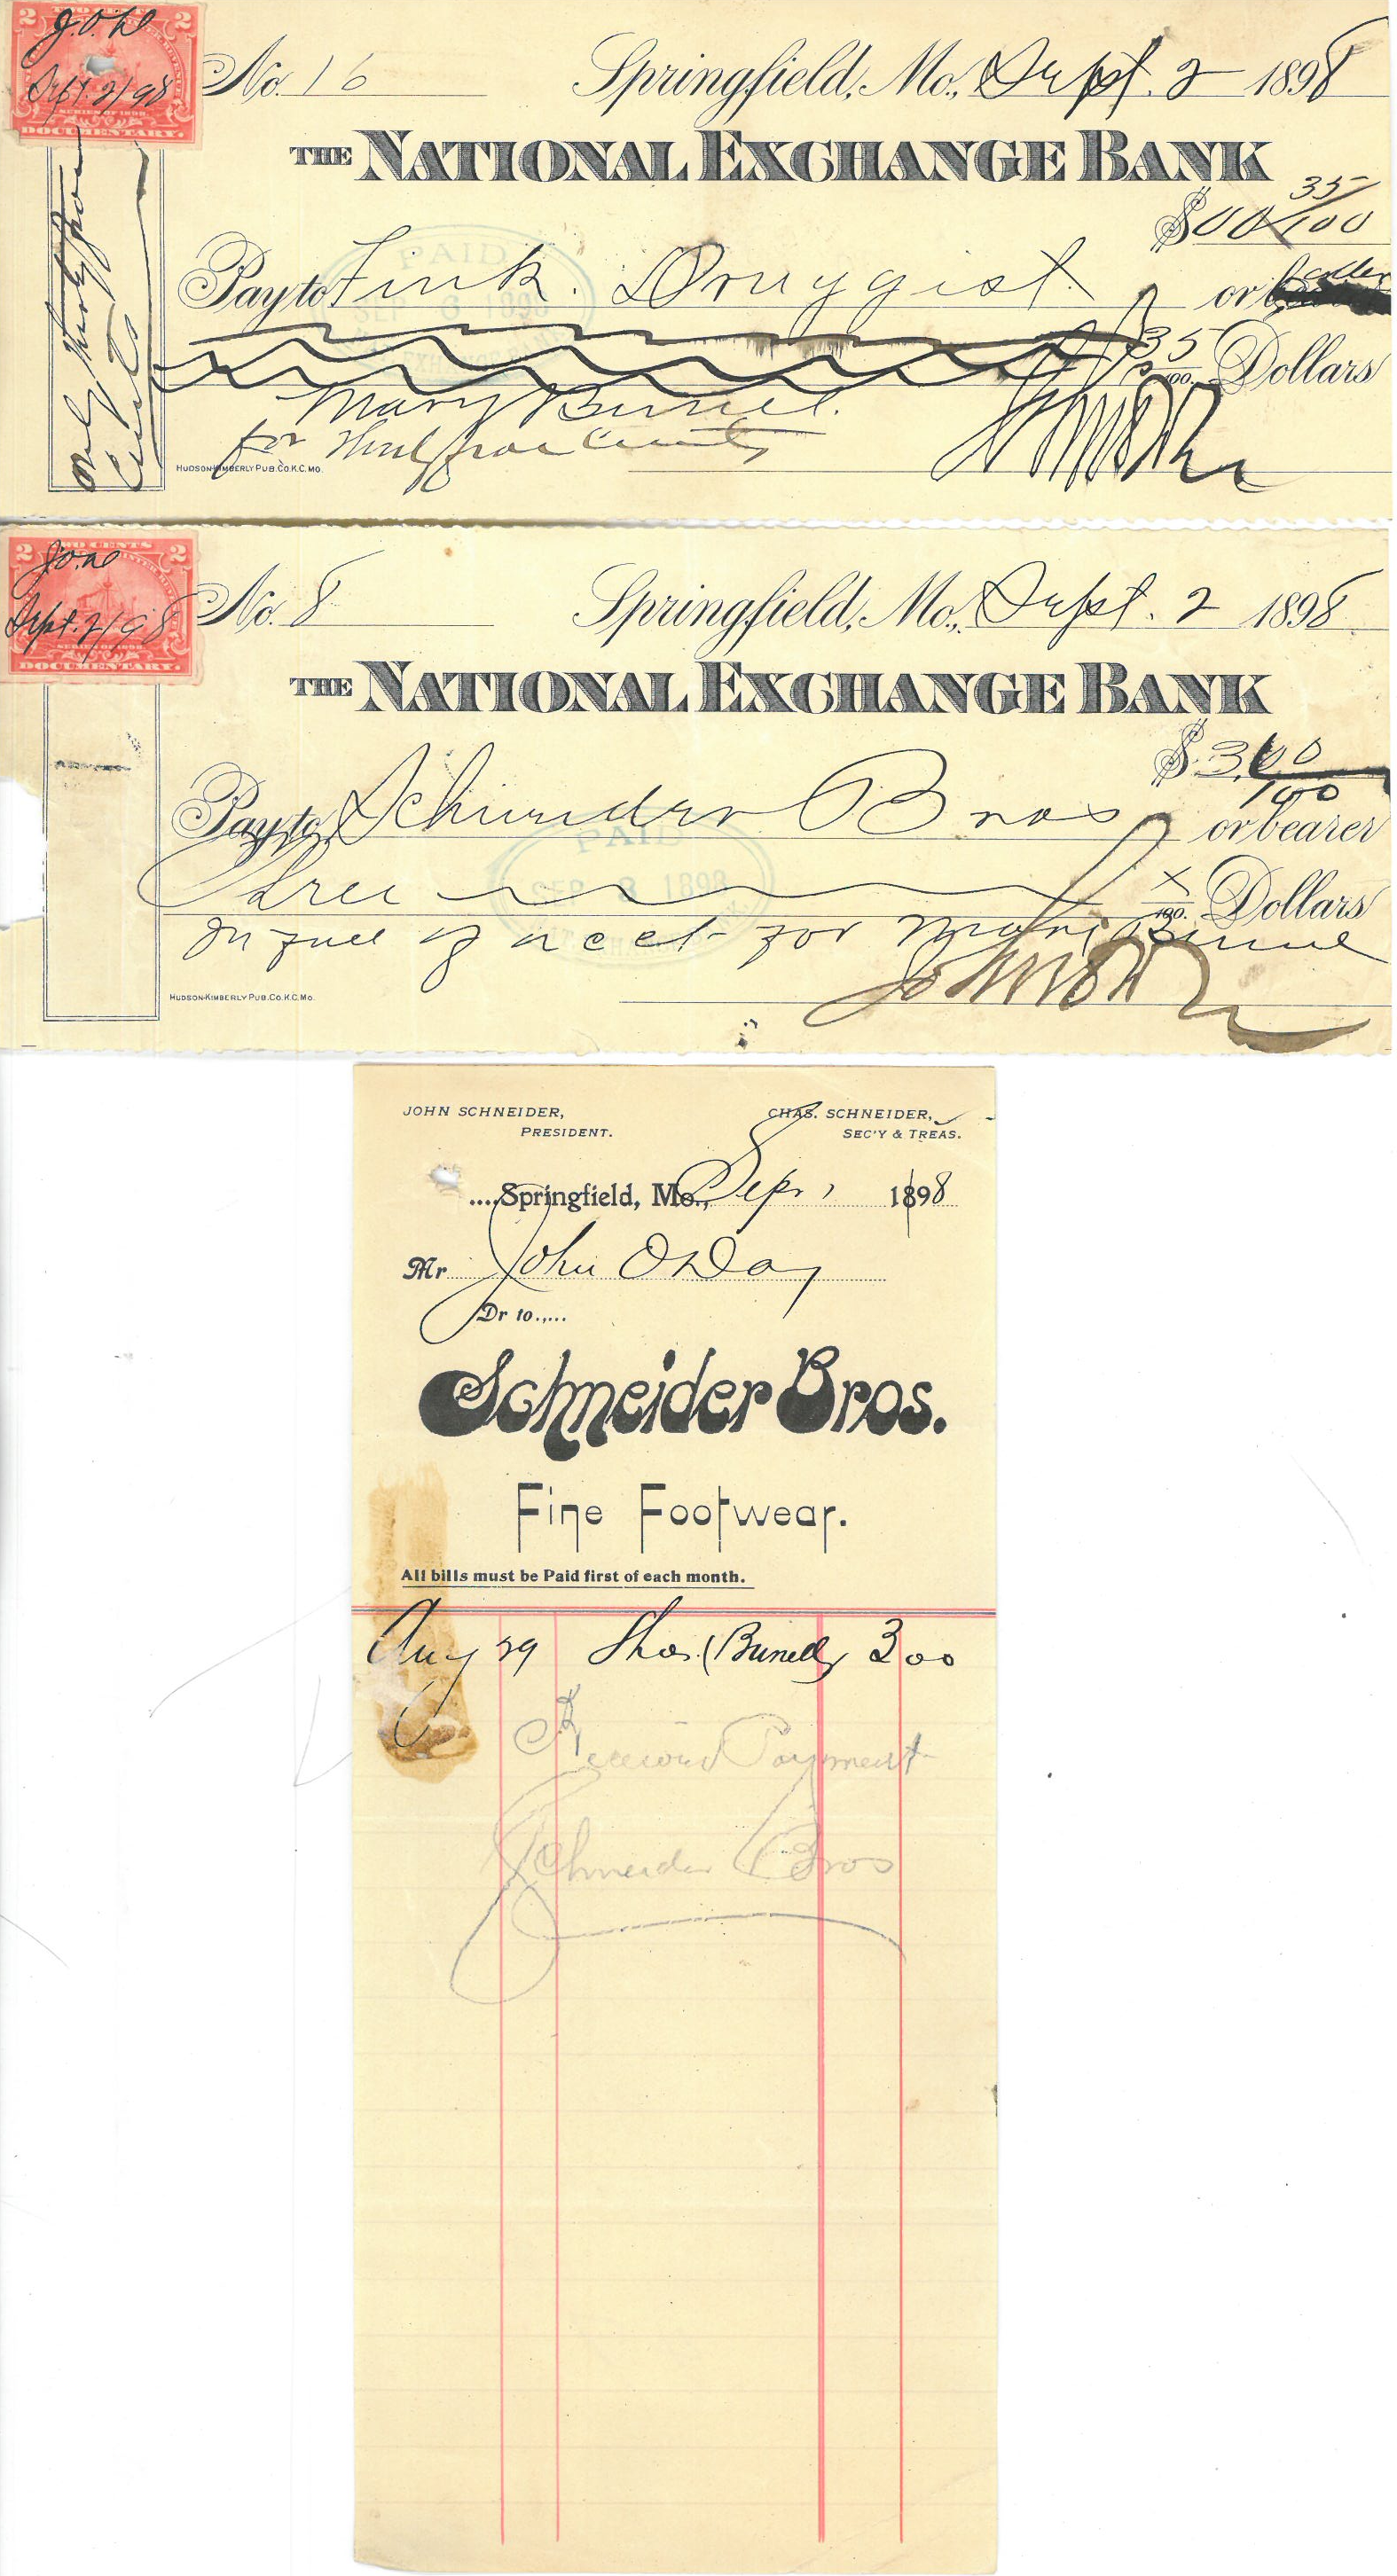 2 2
J.O.D
Sept. 2/98
SERIES OF 1898
DOCUMENTARY.
No. 16 Springfield, Mo., Sept. 2 1898
THE NATIONAL EXCHANGE BANK
$00 35/100
Pay to Fink. Druggist. or order
PAID
SEP 6 1898
35/100. Dollars
Mary Bunel.
for Thirty five Cents
HUDSON-KIMBERLY PUB. CO. K.C. MO.
only Thirty five
Cents
2 TWO CENTS 2
Sept. 2/98
SERIES OF 1898
DOCUMENTARY.
No. 8 Springfield, Mo., Sept. 2 1898
THE NATIONAL EXCHANGE BANK
$3.00/100
Pay to Schneider Bros or bearer
PAID
SEP 3 1898
Three x/100. Dollars
In full of acct for
HUDSON-KIMBERLY PUB. CO. K.C. MO.
JOHN SCHNEIDER, CHAS. SCHNEIDER,
PRESIDENT. SEC'Y & TREAS.
....Springfield, Mo., Sep 1 1898
Mr John O'Day
Dr to.....
Schneider Bros.
Fine Footwear.
All bills must be Paid first of each month.
Aug 29 Shoes (Bunell) 3 00
Received Payment
Schneider Bros